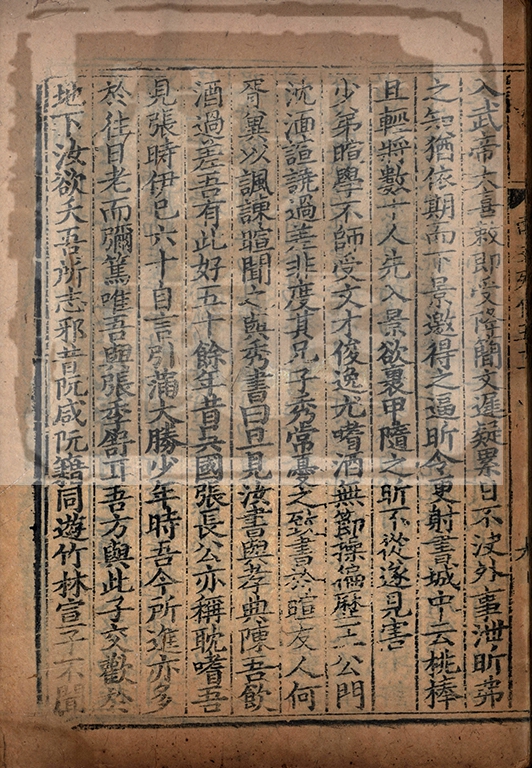 入武帝大喜敕即受降簡文遲疑累日不決外事泄昕弗
之知猶依期而下景邀得之逼昕令更射書城中云桃棒
且輕將數十人先入景欲裹甲隨之昕不從遂見害
少弟暄學不師受文才俊逸尤嗜酒無節操徧歷王公門
沈湎諠譊過差非度其兄子秀常憂之致書於暄友人何
胥冀以諷諫暄聞之與秀書曰旦見汝書與孝典陳吾飲
酒過差吾有此好五十餘年昔吳國張長公亦稱耽嗜吾
見張時伊巳六十自言引蒲大勝少年時吾今所進亦多
於往日老而彌篤唯吾與張季舒耳吾方與此子交歡於
地下汝欲夭吾所志邪昔阮咸阮籍同遊竹林宣子不聞